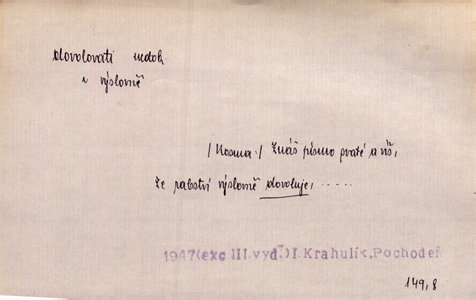 dovolovati nedok.
u výslovně
/Kosma:/ Znáš písmo svaté a víš,
že rabství výslovně dovoluje, .....
1947(exc III.vyd.)I.Krahulík,Pochodeň
149,8